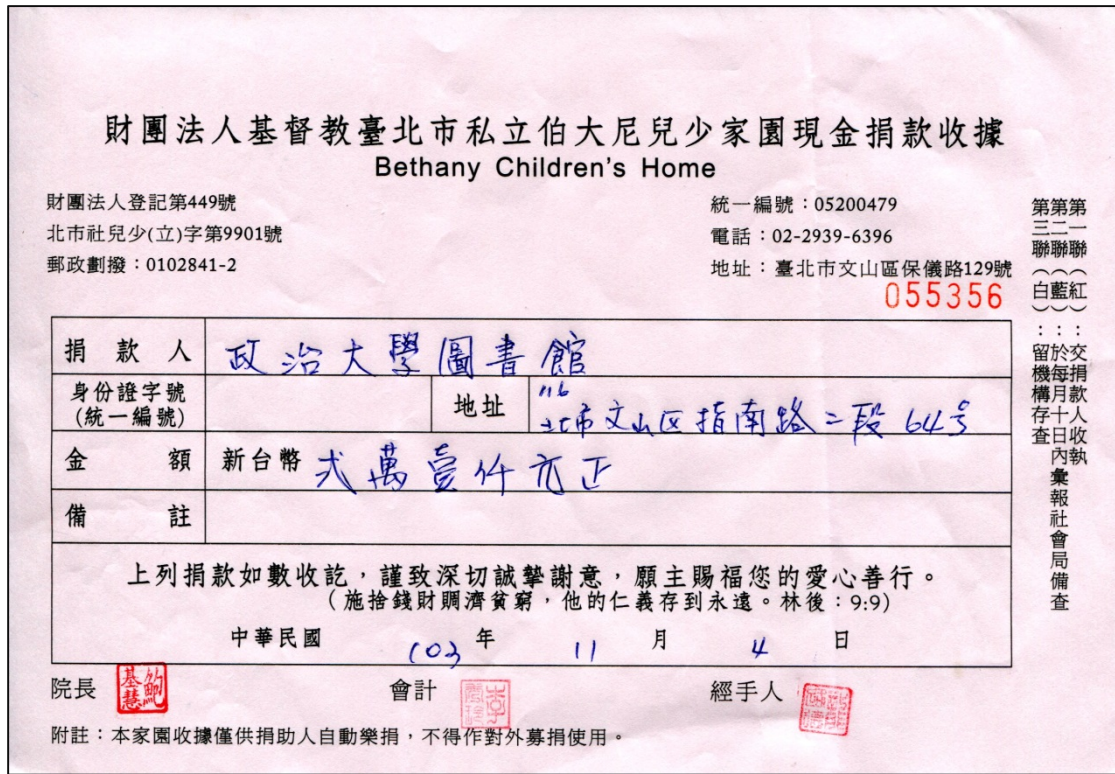 財團法人基督教臺北市私立伯大尼兒少家園現金捐款收據
Bethany Children's Home
財團法人登記第449號
北市社兒少(立)字第9901號
郵政劃撥：0102841-2
統一編號：05200479
電話：02-2939-6396
地址：臺北市文山區保儀路129號
055356
捐款人 政治大學圖書館
身份證字號
(統一編號)
地址 116
北市文山区指南路二段64号
金額 新台幣 弍萬壹仟元正
備註
上列捐款如數收訖，謹致深切誠摯謝意，願主賜福您的愛心善行。
(施捨錢財賙濟貧窮，他的仁義存到永遠。林後：9:9)
中華民國 103 年 11 月 4 日
院長 鮑基慧 會計 經手人
附註：本家園收據僅供捐助人自動樂捐，不得作對外募捐使用。
第一聯(紅)：交捐款人收執
第二聯(藍)：於每月十日內彙報社會局備查
第三聯(白)：留機構存查